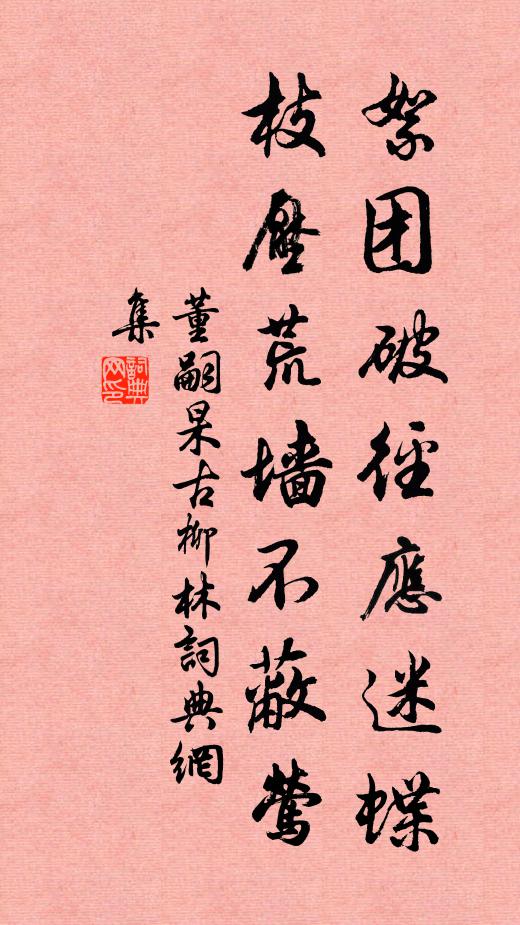 絮团破径應迷蝶
枝壓荒墙不蔽莺
董嗣杲古柳林詞典網
集
詞典
网印